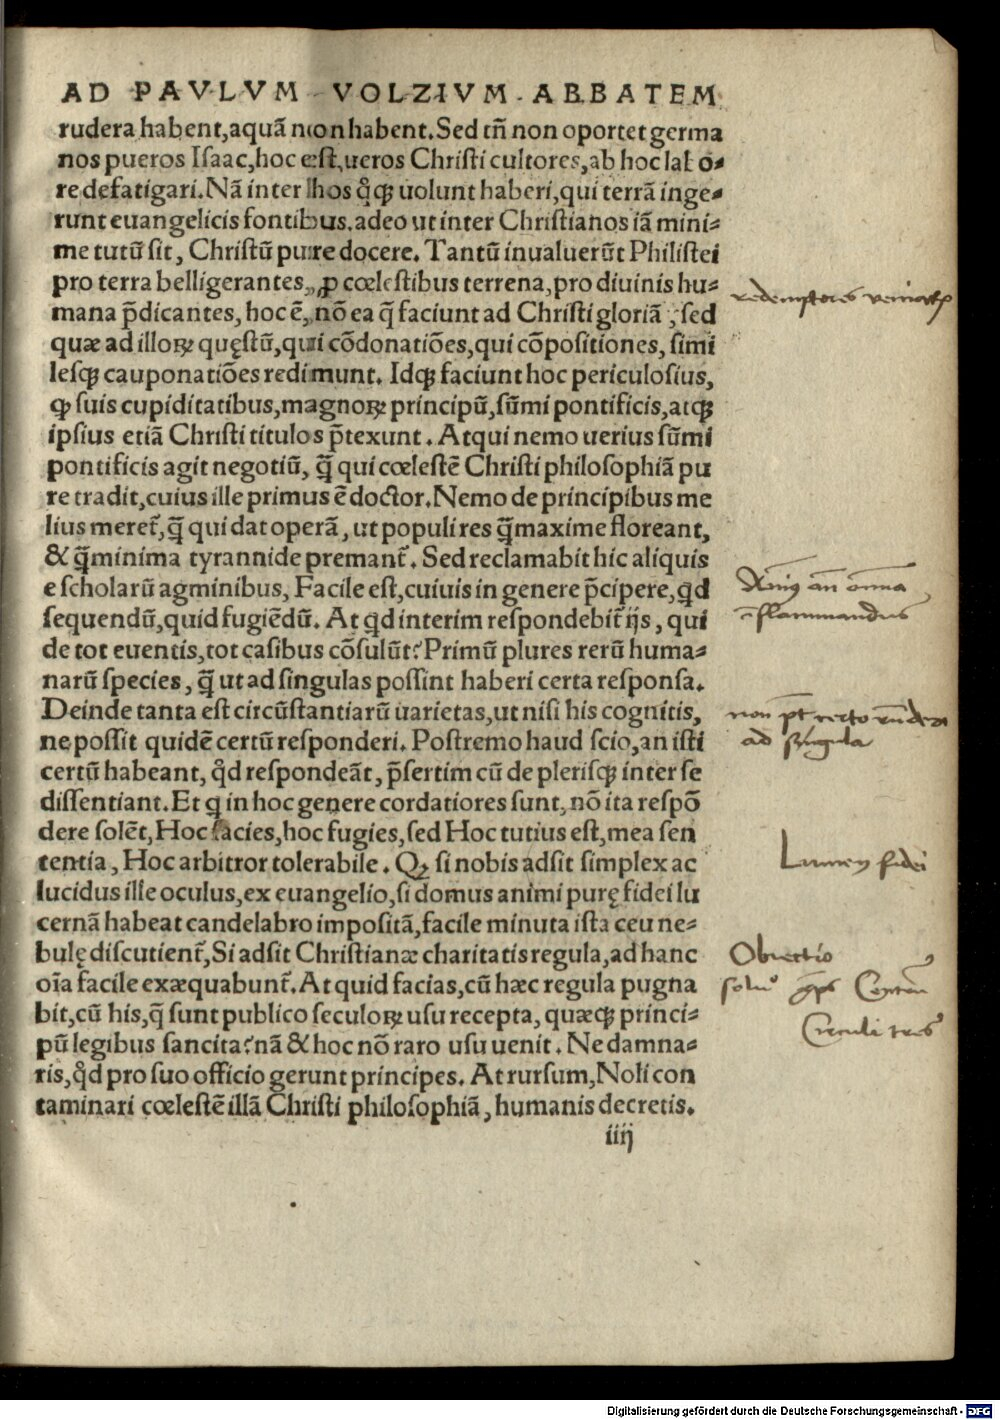 AD PAVLVM VOLZIVM ABBATEM
rudera habent,aquā non habent.Sed tñ non oportet germa
nos pueros Isaac,hoc est,ueros Christi cultores,ab hoc labo⸗
re defatigari.Nā inter hos qͥqꝫ uolunt haberi,qui terrā inge⸗
runt euangelicis fontibus.adeo ut inter Christianos iā mini⸗
me tutū sit, Christū pure docere. Tantū inualuerūt Philistei
pro terra belligerantes, ꝓ cœlestibus terrena,pro diuinis hu⸗
mana p̄dicantes, hoc ē, nō ea q̄ faciunt ad Christi gloriā, sed
quæ ad illoꝝ quęstū,qui cōdonatiōes,qui cōpositiones, simi
lesqꝫ cauponatiōes redimunt. Idqꝫ faciunt hoc periculosius,
ꝙ suis cupiditatibus,magnoꝝ principū,sūmi pontificis,atqꝫ
ipsius etiā Christi titulos p̄texunt. Atqui nemo uerius sūmi
pontificis agit negotiū, q̄ qui cœlestē Christi philosophiā pu
re tradit,cuius ille primus ē doctor.Nemo de principibus me
lius meret̃,q̄ qui dat operā, ut populi res q̄maxime floreant,
& q̄minima tyrannide premant̃. Sed reclamabit hic aliquis
e scholarū agminibus, Facile est,cuiuis in genere p̄cipere,qͥd
sequendū,quid fugiēdū. At qͥd interim respondebit̃ ijs, qui
de tot euentis,tot casibus cōsulūt? Primū plures rerū huma⸗
narū species, q̄ ut ad singulas possint haberi certa responsa.
Deinde tanta est circūstantiarū uarietas,ut nisi his cognitis,
ne possit quidē certū responderi. Postremo haud scio,an isti
certū habeant, qͥd respondeāt, p̄sertim cū de plerisqꝫ inter se
dissentiant.Et qͥ in hoc genere cordatiores sunt, nō ita respō
dere solēt,Hoc facies,hoc fugies,sed Hoc tutius est,mea sen
tentia, Hoc arbitror tolerabile. Qꝫ si nobis adsit simplex ac
lucidus ille oculus,ex euangelio,si domus animi purę fidei lu
cernā habeat candelabro impositā,facile minuta ista ceu ne⸗
bulę discutient̃,Si adsit Christianæ charitatis regula,ad hanc
oīa facile exæquabunt̃.At quid facias,cū hæc regula pugna
bit,cū his,q̄ sunt publico seculoꝝ usu recepta, quæqꝫ princi⸗
pū legibus sancita?nā & hoc nō raro usu uenit. Ne damna⸗
ris,qͥd pro suo officio gerunt principes. At rursum,Noli con
taminari cœlestē illā Christi philosophiā, humanis decretis.
iiij
Lumen fidei
Obiectio